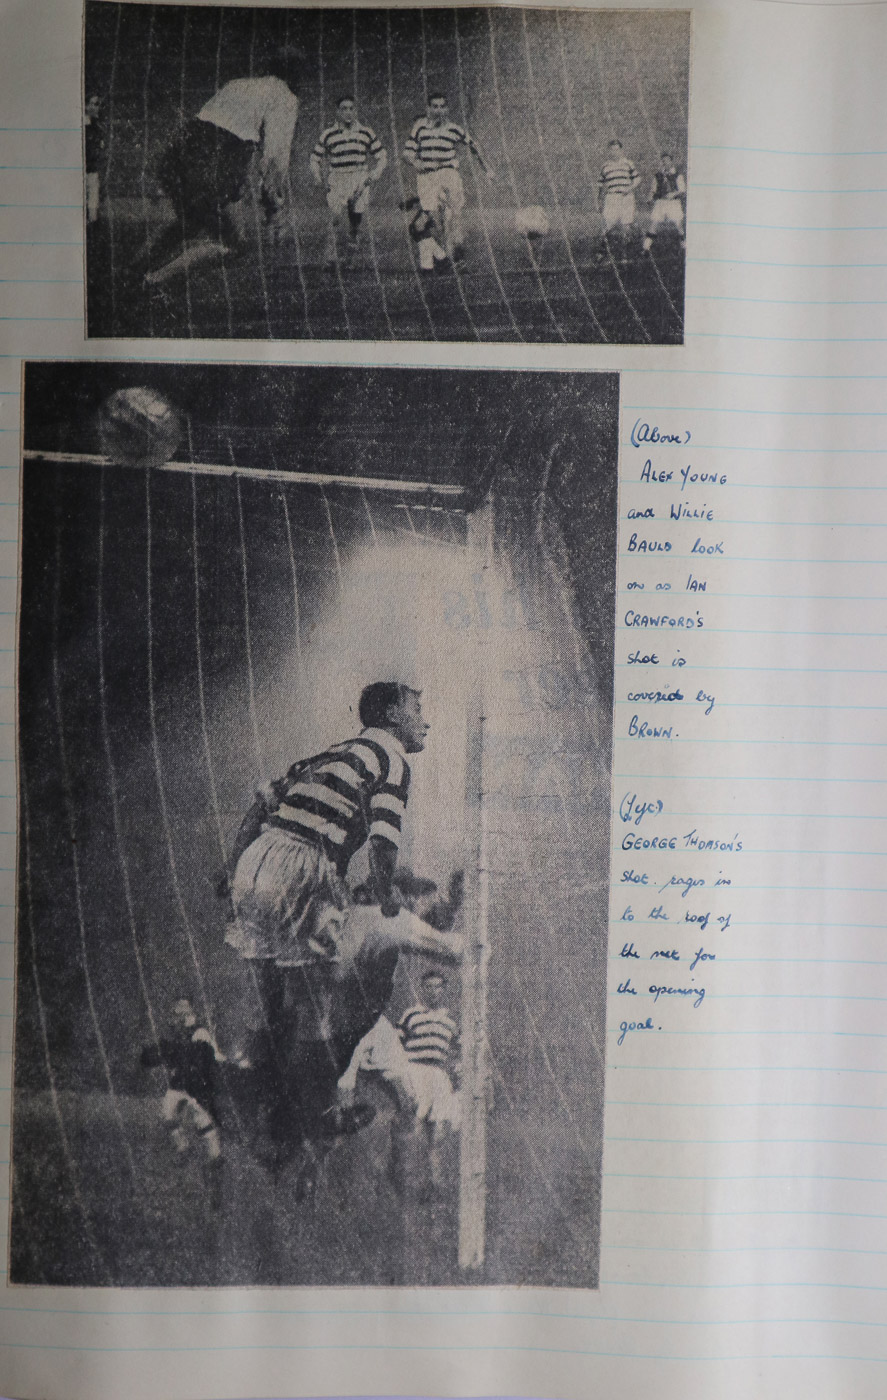 (Above)
ALEX YOUNG
and WILLIE
BAULD look
on as IAN
CRAWFORD'S
shot is
covered by
BROWN.
GEORGE THOMSON'S
shot rages in
to the roof of
the net for
the opening
goal.